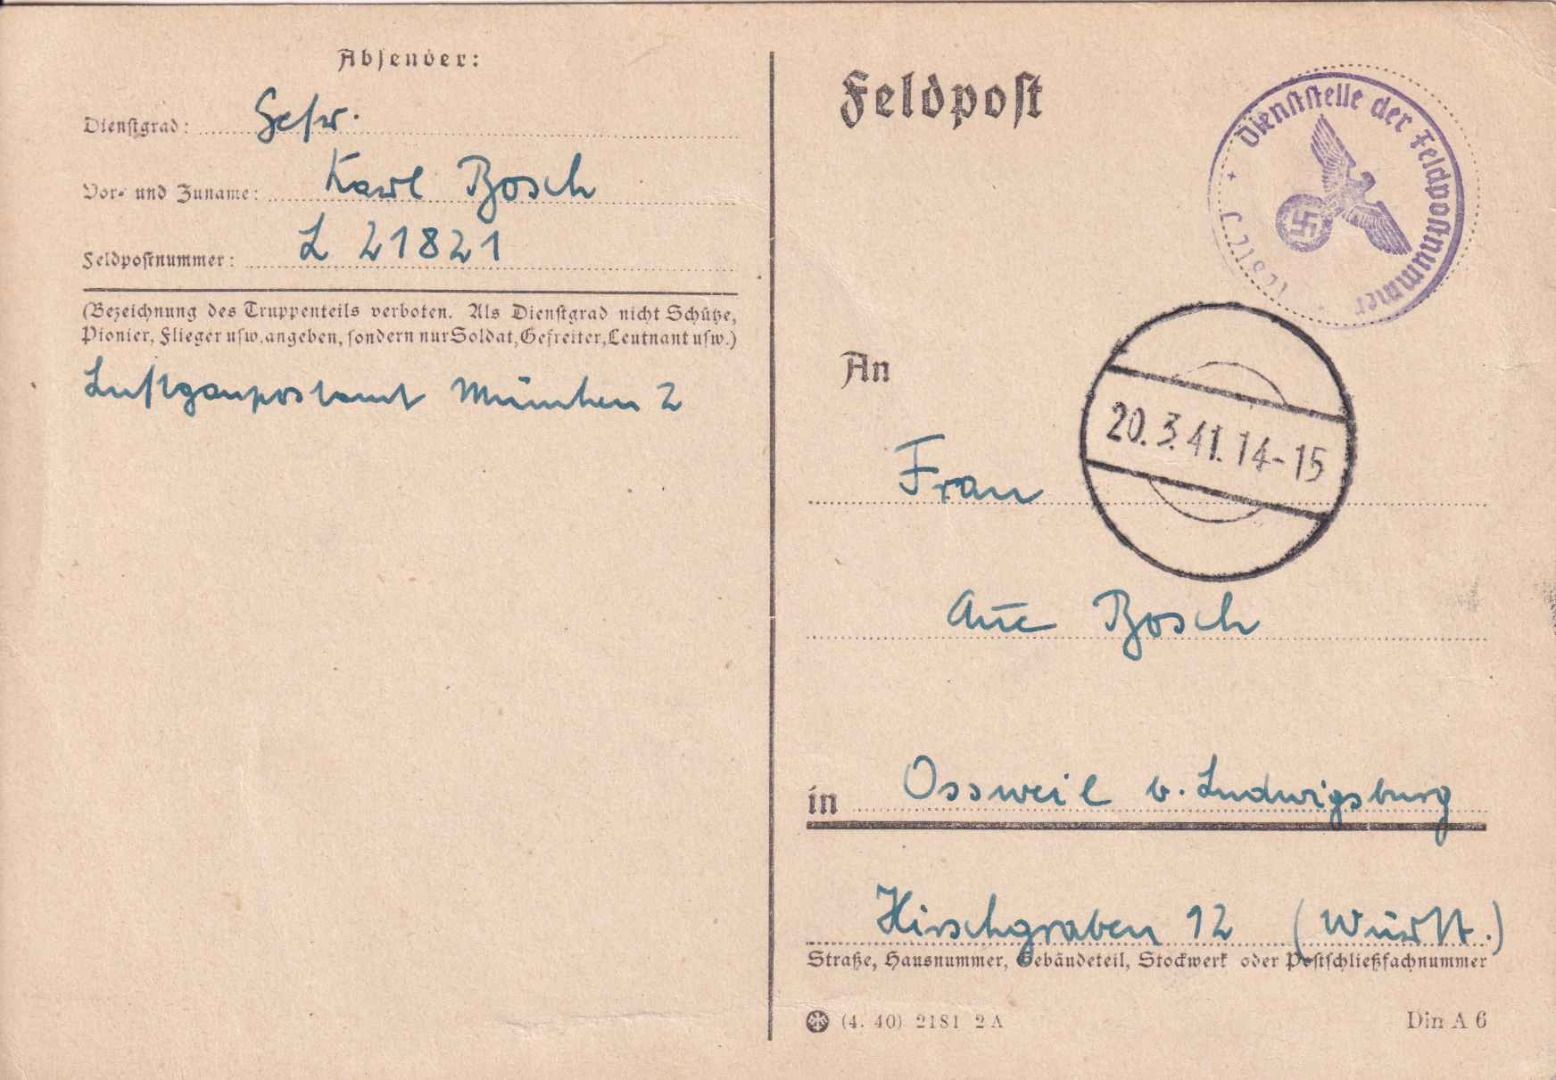 Absender:
Dienstgrad: Gefr.
Vor- und Zuname: Karl Bosch
Feldpostnummer: L 21821
(Bezeichnung des Truppenteils verboten. Als Dienstgrad nicht Schütze,
Pionier, Flieger usw. angeben, sondern nur Soldat, Gefreiter, Leutnant usw.)
Luftgaupostamt München 2
Feldpost
Dienststelle der Feldpostnummer
+ L 21821 +
20.3.41.14-15
An
Frau
Bosch
in Ossweil b. Ludwigsburg
Hirschgraben 12 (Württ.)
Straße, Hausnummer, Gebäudeteil, Stockwerk oder Postschließfachnummer
(4. 40) 2181 2 A
Din A 6